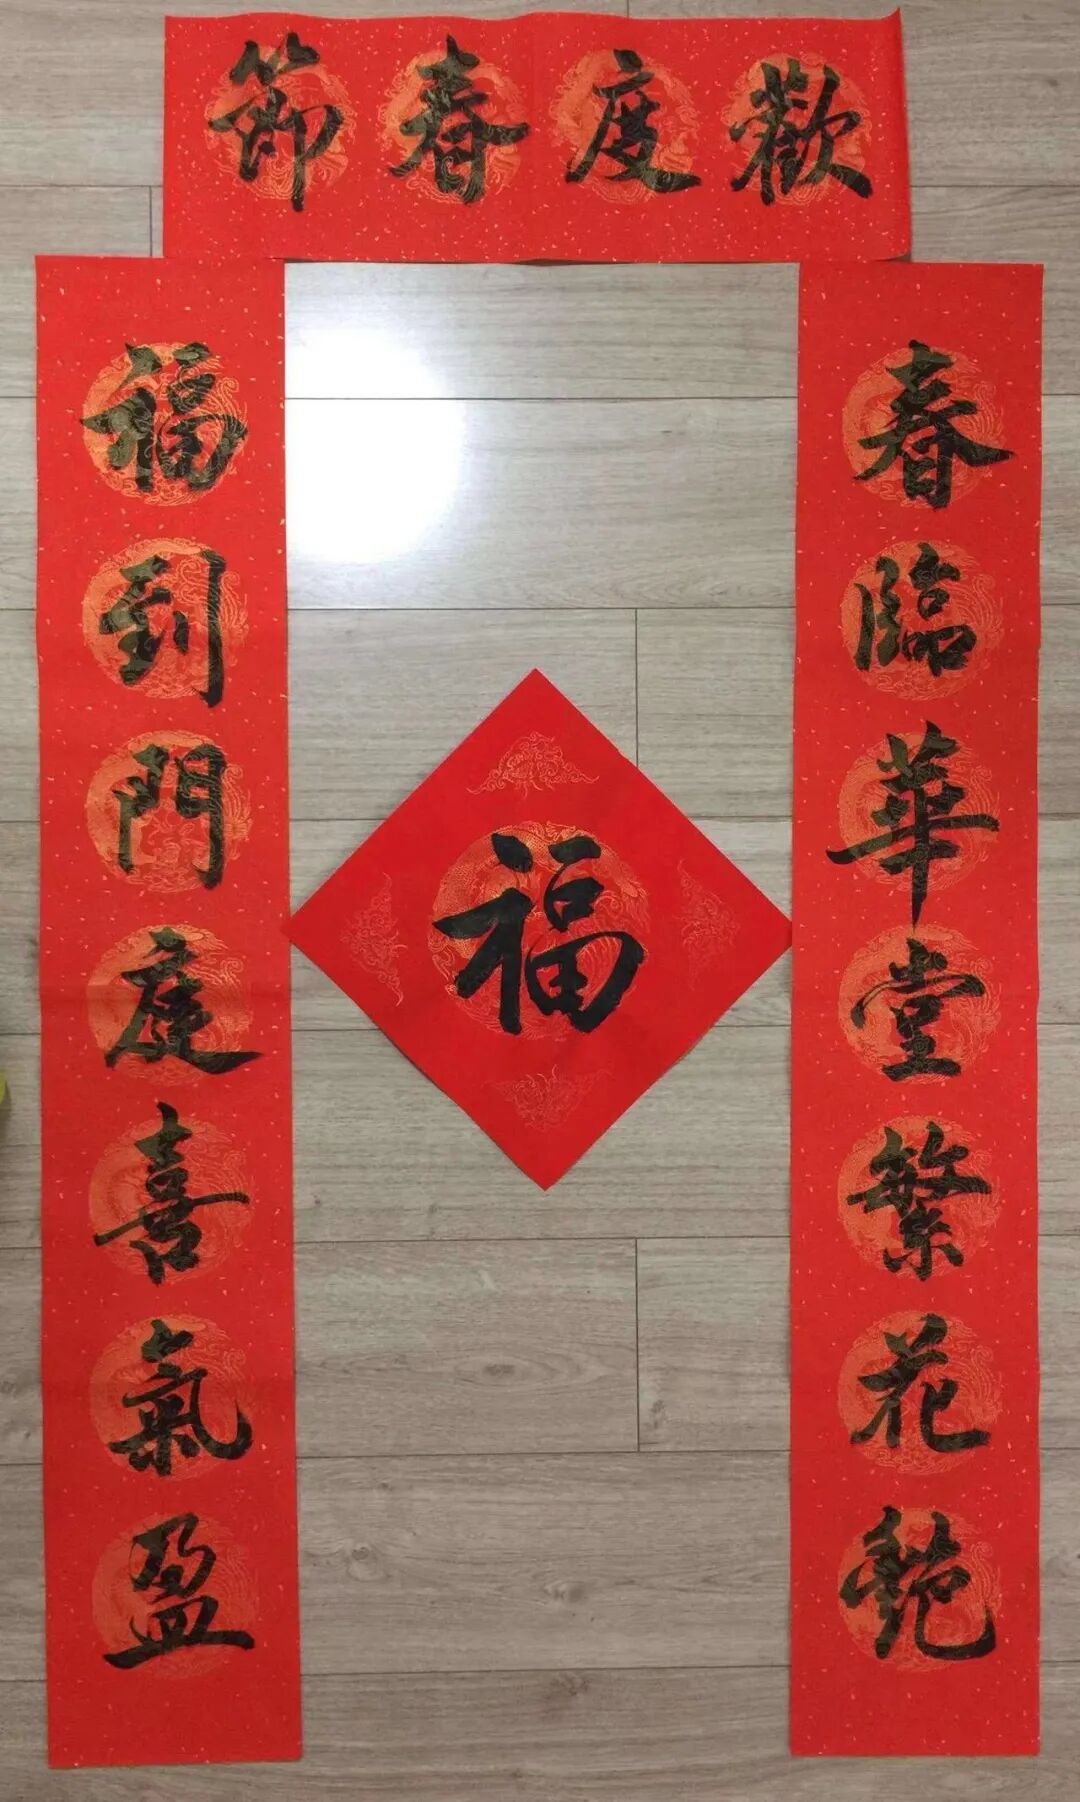 歡度春節
春臨華堂繁花艷
福到門庭喜氣盈
福